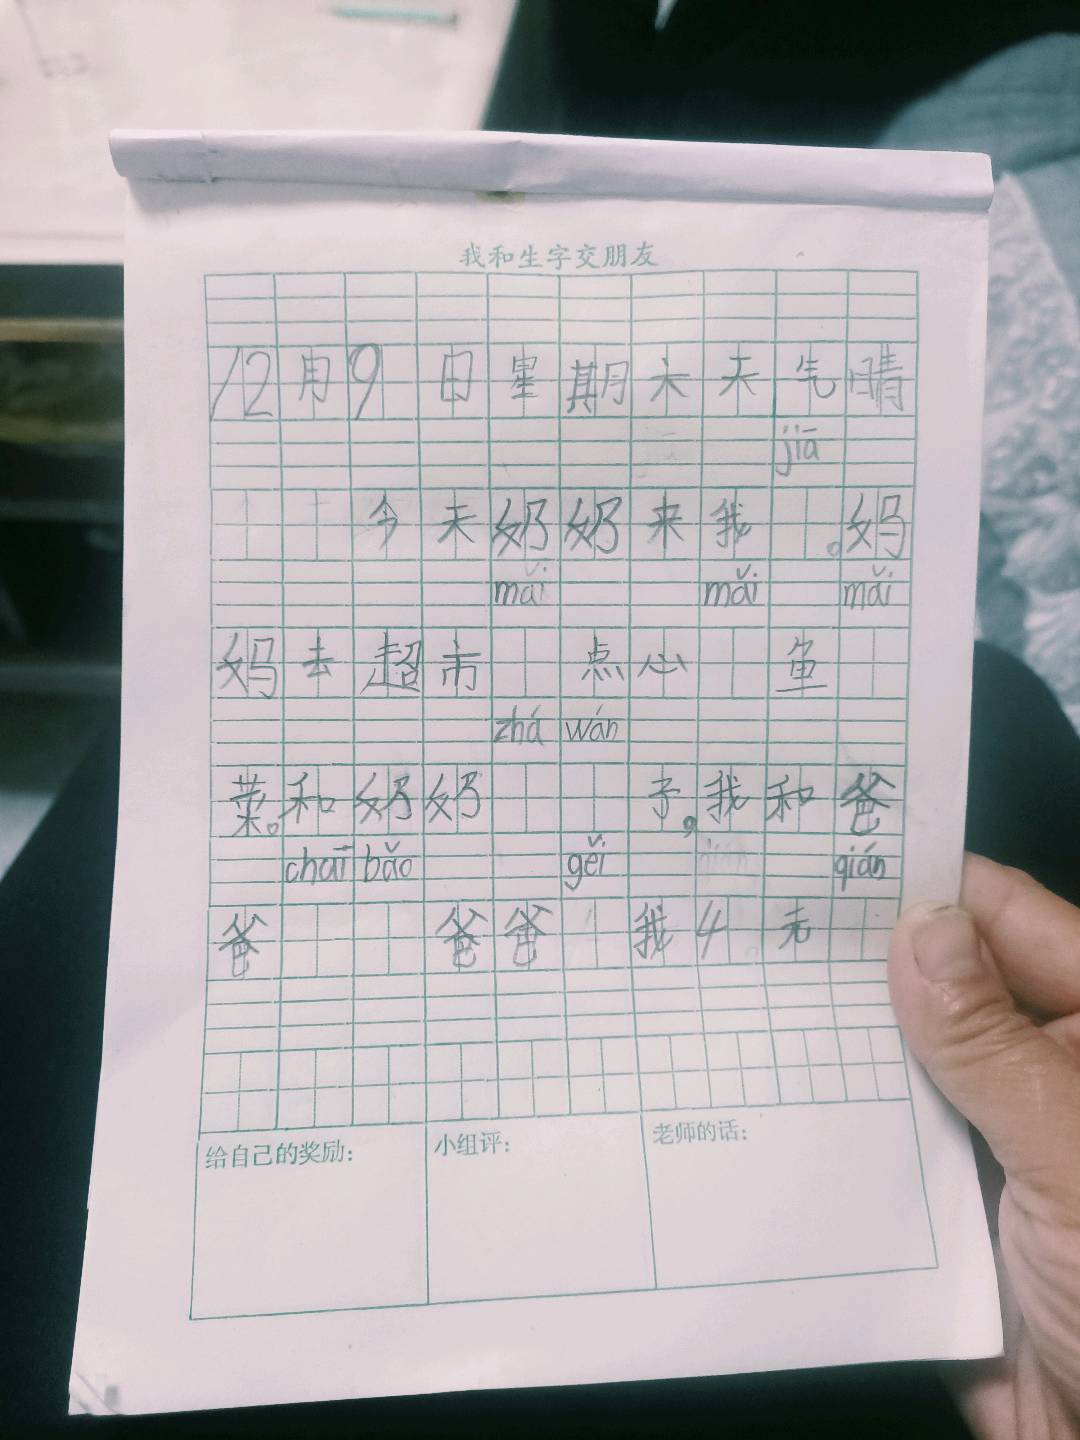 我和生字交朋友
12月9日星期六天气晴
jiā
今天奶奶来我。妈
mǎi mǎi mǎi
妈去超市点心鱼
zhá wán
菜。和奶奶子,我和爸
chāi bǎo gěi qián
爸爸爸我4元
给自己的奖励:
小组评:
老师的话: